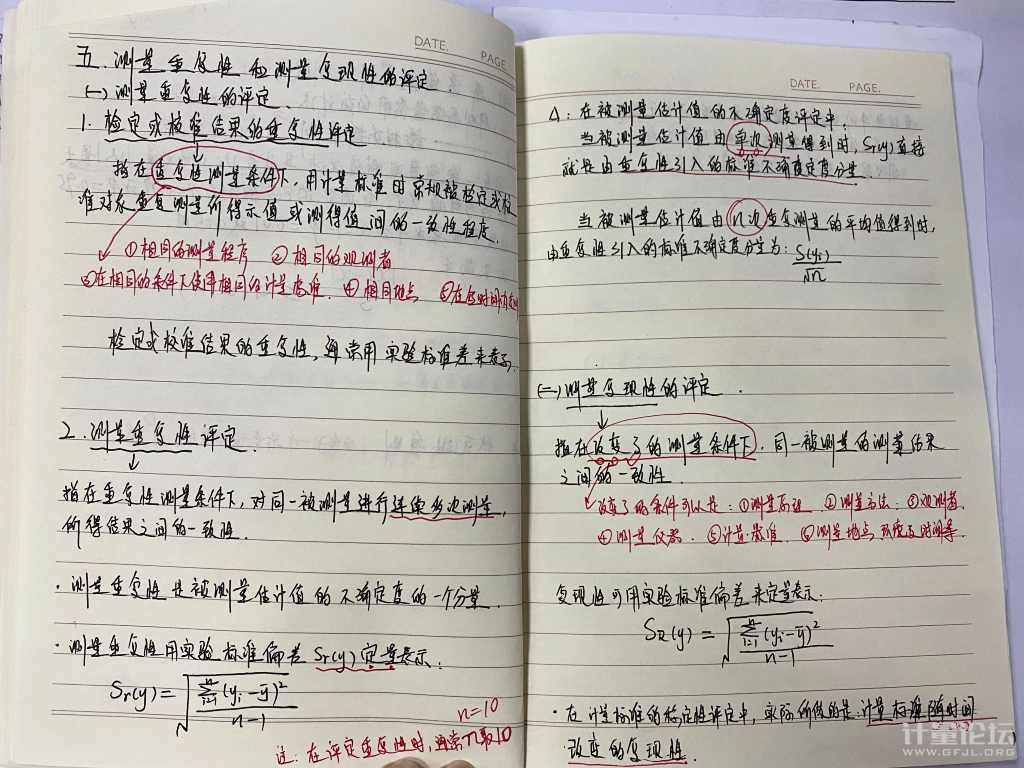 DATE. PAGE.
五. 测量重复性和测量复现性的评定
(一) 测量重复性的评定.
1. 检定或校准结果的重复性评定
指在重复性测量条件下, 用计量标准对常规被检定或校
准对象重复测量所得示值或测得值间的一致性程度.
①相同的测量程序 ②相同的观测者
③在相同的条件下使用相同的计量标准. ④相同地点 ⑤在短时间内
检定或校准结果的重复性, 通常用实验标准差来表示.
2. 测量重复性评定.
指在重复性测量条件下, 对同一被测量进行连续多次测量,
所得结果之间的一致性.
· 测量重复性是被测量估计值的不确定度的一个分量.
· 测量重复性用实验标准偏差 Sr(y) 定量表示:
Sr(y) = √(∑ⁿᵢ₌₁(yᵢ-ȳ)²/(n-1))
n=10
注: 在评定重复性时, 通常n取10
DATE. PAGE.
Δ: 在被测量估计值的不确定度评定中:
当被测量估计值由单次测量得到时, Sr(y)直接
就是由重复性引入的标准不确定度分量.
当被测量估计值由n次重复测量的平均值得到时,
由重复性引入的标准不确定度分量为: S(yᵢ)/√n
(二) 测量复现性的评定.
指在改变了的测量条件下. 同一被测量的测量结果
之间的一致性.
改变了的条件可以是: ①测量原理 ②测量方法: ③观测者.
④测量仪器. ⑤计量标准. ⑥测量地点 环境及时间等.
复现性可用实验标准偏差来定量表示:
SR(y) = √(∑ⁿᵢ₌₁(yᵢ-ȳ)²/(n-1))
· 在计量标准的稳定性评定中, 实际所做的是: 计量标准随时间
改变的复现性.
计量论坛
WWW.GFJL.ORG